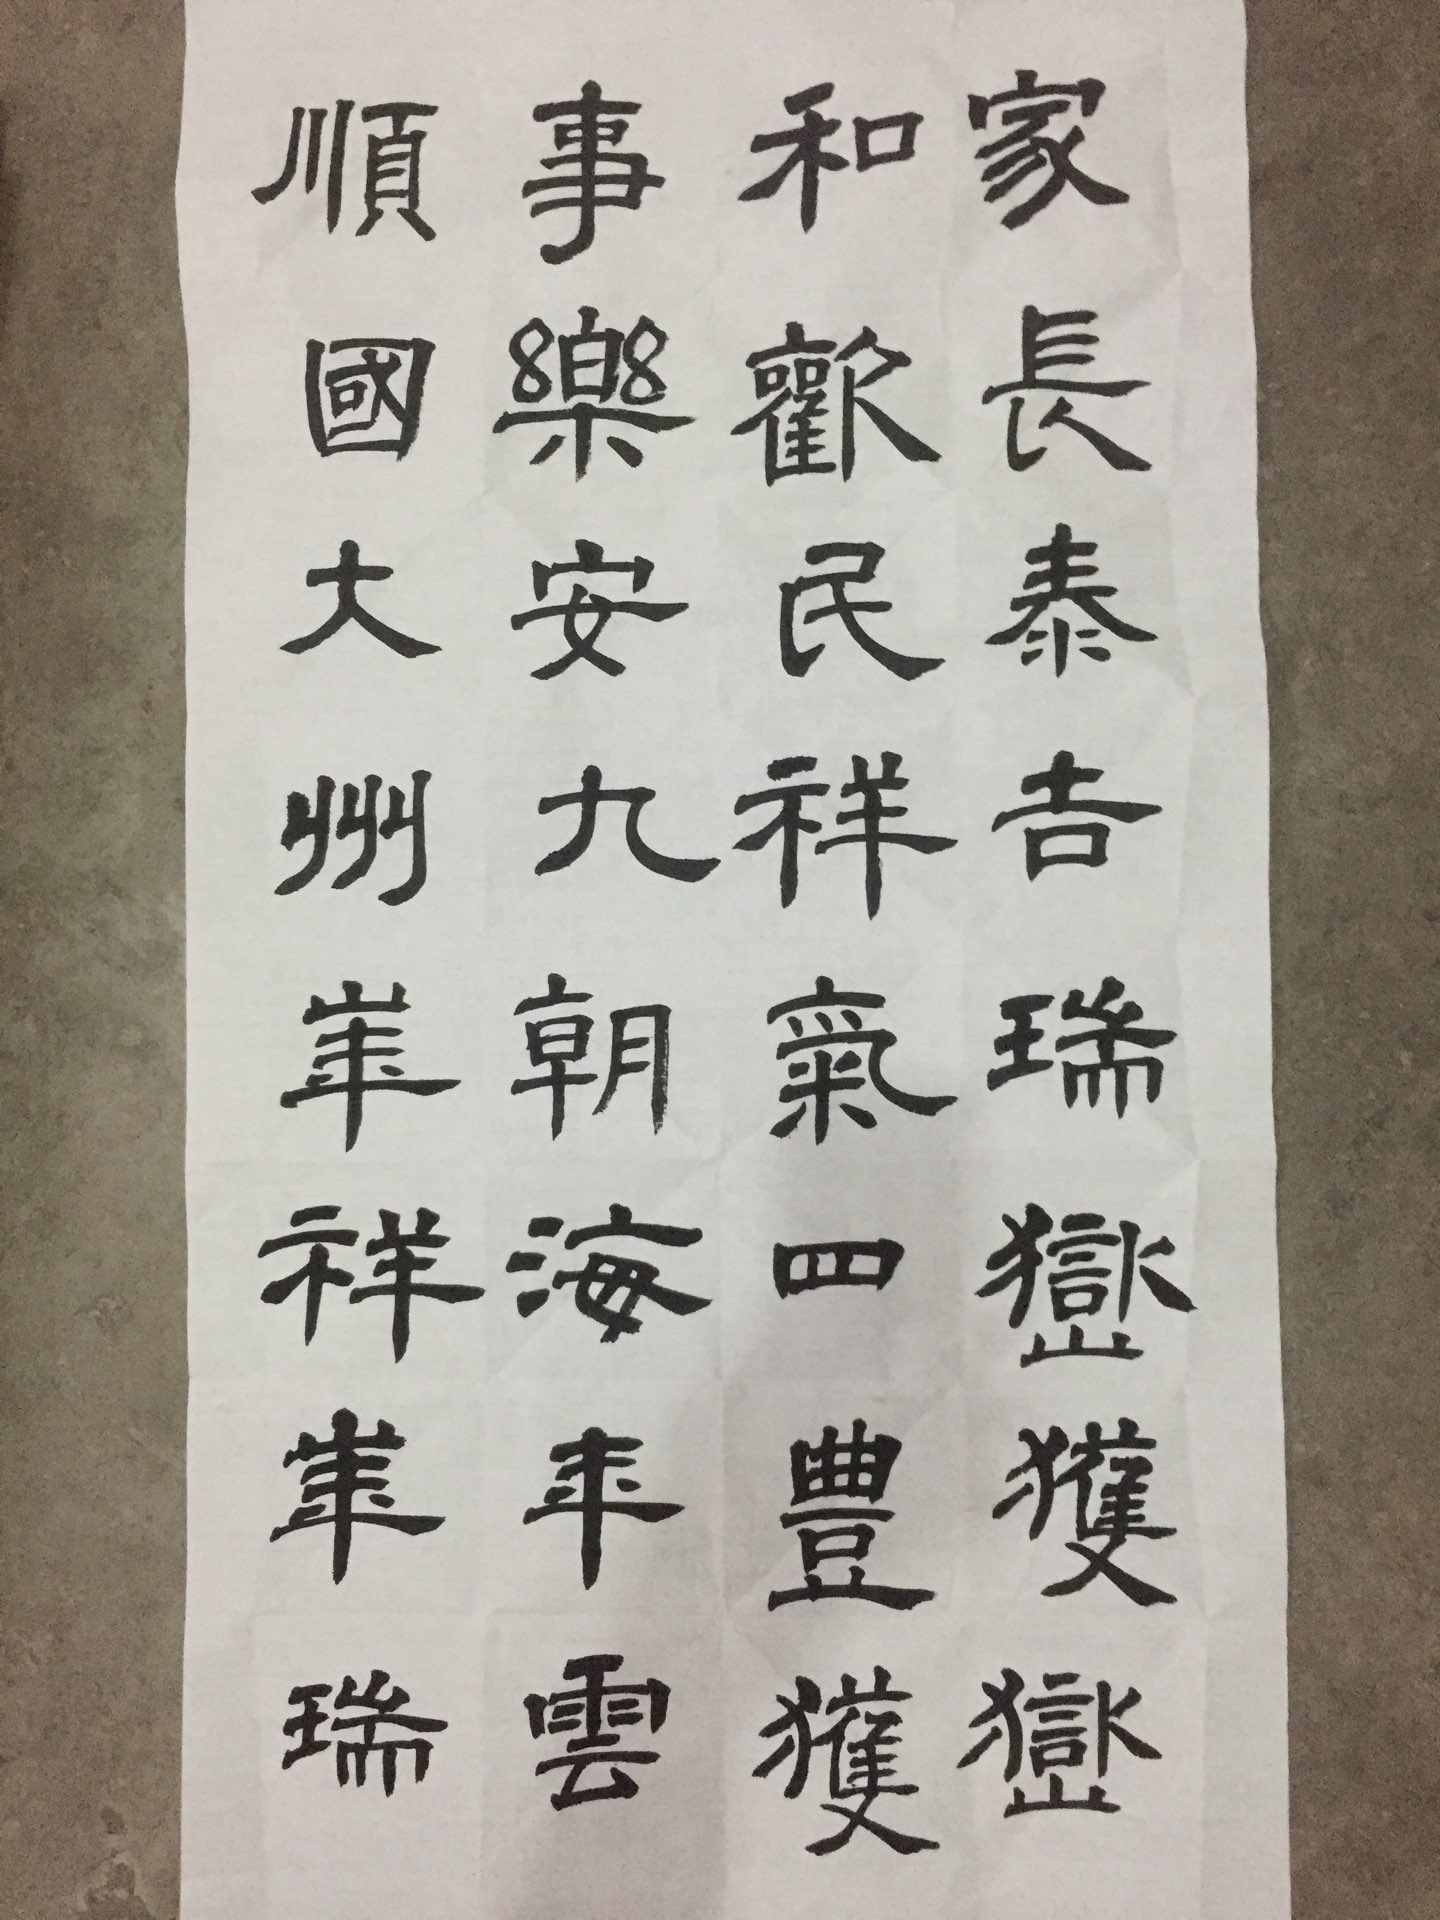 家和事順
長歡樂國
泰民安大
吉祥九州
瑞氣朝崋
嶽四海祥
獲豊年崋
嶽獲雲瑞